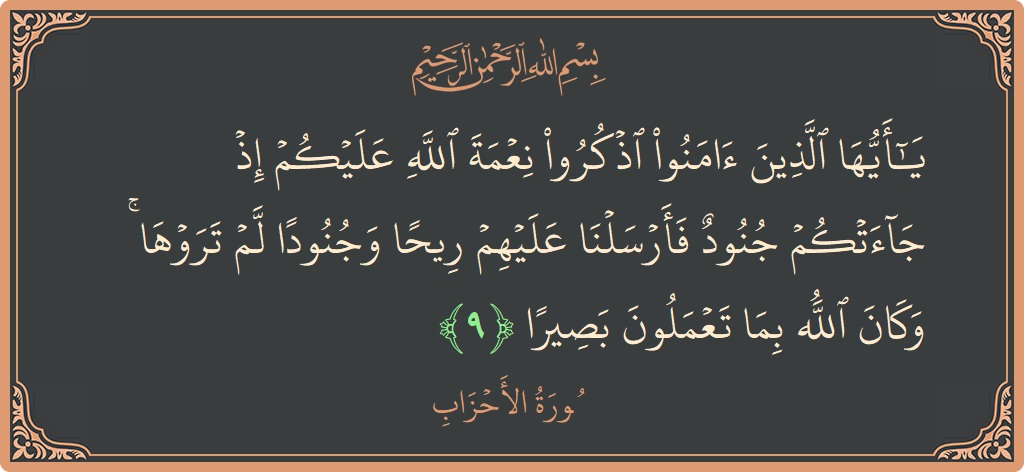 بِسْمِ اللهِ الرَّحْمٰنِ الرَّحِيْمِ
يَـٰٓأَيُّهَا ٱلَّذِينَ ءَامَنُوا۟ ٱذْكُرُوا۟ نِعْمَةَ ٱللَّهِ عَلَيْكُمْ إِذْ
جَآءَتْكُمْ جُنُودٌ فَأَرْسَلْنَا عَلَيْهِمْ رِيحًا وَجُنُودًا لَّمْ تَرَوْهَا ۚ
وَكَانَ ٱللَّهُ بِمَا تَعْمَلُونَ بَصِيرًا ﴿٩﴾
سُورَةُ الأَحْزَابِ